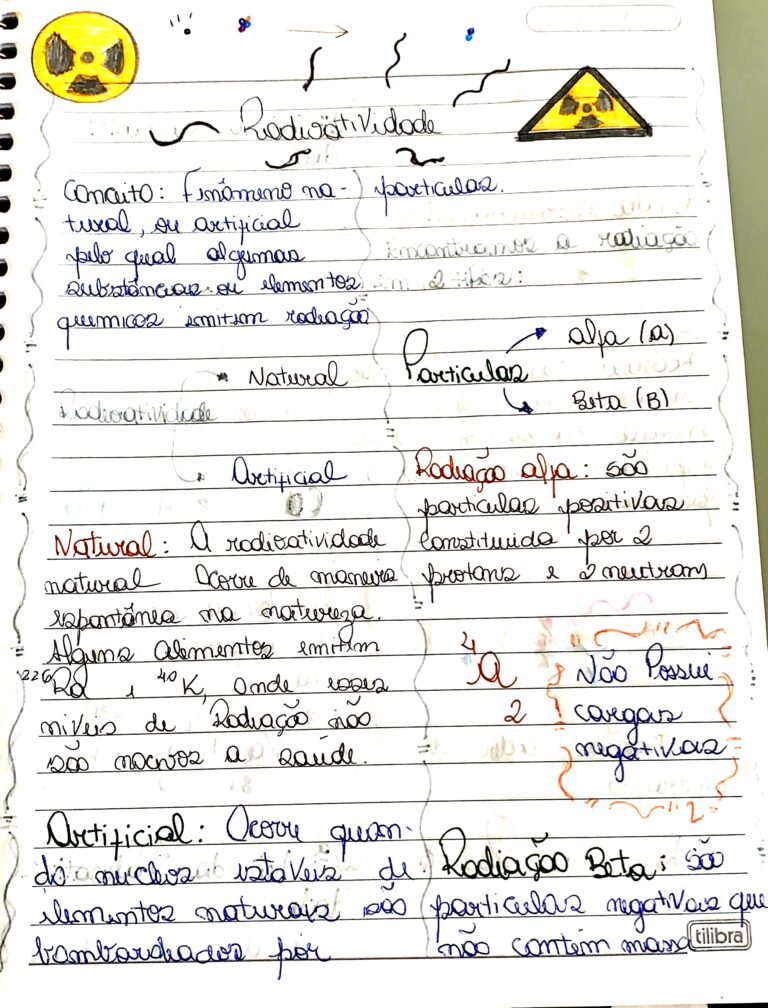 Radioatividade
Conceito: Fenômeno na-
tural, ou artificial
pelo qual algumas
substâncias ou elementos
quimicos emitem radiação
Natural
Radioatividade
Artificial
Natural: A radioatividade
natural Ocorre de maneira
espontânea na natureza.
Alguns alimentos emitem
226Rd e 40K, Onde esses
niveis de Radiação não
são nocivos a saúde.
Artificial: Ocorre quan-
do núcleos estáveis de
elementos naturais são
bombardeados por
particulas.
Encontramos a radiação
em 2 tipos:
alfa (a)
Particulas
Beta (B)
Radiação alfa: são
particulas positivas
Constituida por 2
protons e 2 neutrons
4
a
2
Não Possui
cargas
negativas
Radiação Beta: são
particulas negativas que
não contém massa
tilibra